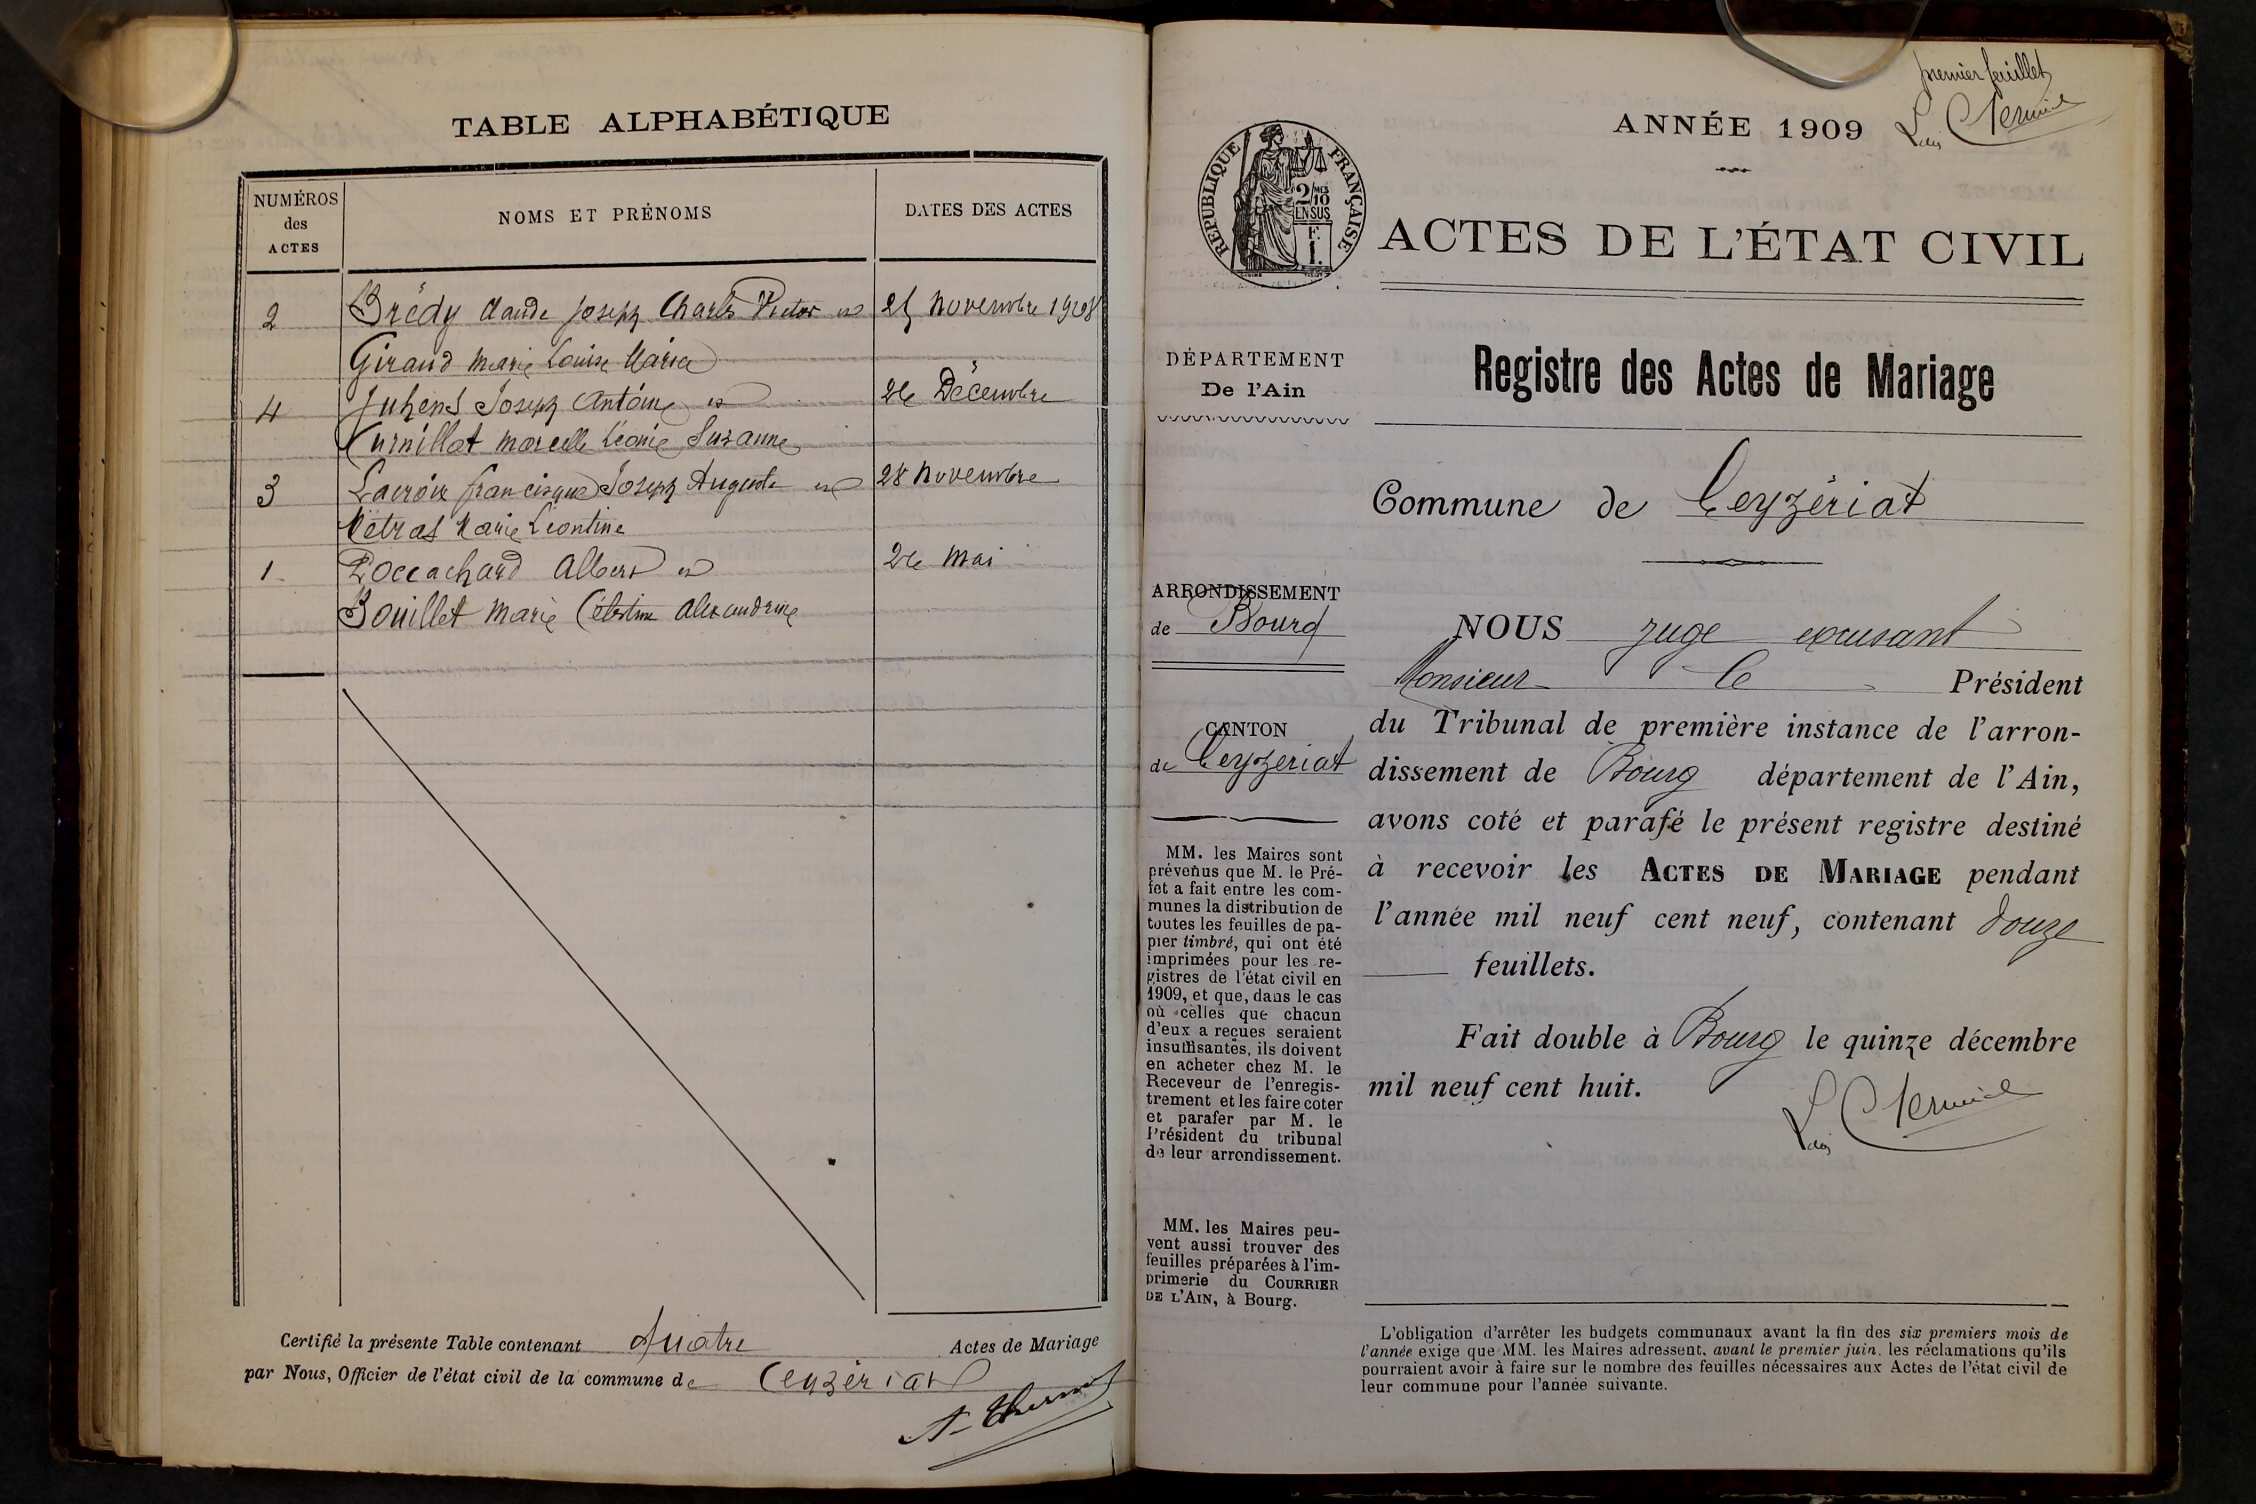 TABLE ALPHABÉTIQUE
NUMÉROS des ACTES
NOMS ET PRÉNOMS
DATES DES ACTES
2 Brédy Claude Joseph Charles Victor et novembre 1908
Giraud Marie Louise Maria
4 Juhens Joseph Antoine et 26 Décembre
Curnillat Marcelle Léonie Suzanne
3 Lacroix Francisque Joseph Auguste et 28 novembre
Métras Marie Léontine
1 Poccachard Albert et 26 mai
Bouillet Marie Célestine Alexandrine
Certifié la présente Table contenant quatre Actes de Mariage
par Nous, Officier de l'état civil de la commune de Ceyzériat
premier feuillet
ANNÉE 1909
RÉPUBLIQUE FRANÇAISE
2/10 MES
EN SUS
F.
1.
ACTES DE L'ÉTAT CIVIL
DÉPARTEMENT
De l'Ain
Registre des Actes de Mariage
Commune de Ceyzériat
ARRONDISSEMENT
de Bourg
CANTON
de Ceyzériat
MM. les Maires sont
prévenus que M. le Pré-
fet a fait entre les com-
munes la distribution de
toutes les feuilles de pa-
pier timbré, qui ont été
imprimées pour les re-
gistres de l'état civil en
1909, et que, dans le cas
où celles que chacun
d'eux a reçues seraient
insuffisantes, ils doivent
en acheter chez M. le
Receveur de l'enregis-
trement et les faire coter
et parafer par M. le
Président du tribunal
de leur arrondissement.
MM. les Maires peu-
vent aussi trouver des
feuilles préparées à l'im-
primerie du COURRIER
DE L'AIN, à Bourg.
NOUS juge excusant
Monsieur le Président
du Tribunal de première instance de l'arron-
dissement de Bourg département de l'Ain,
avons coté et parafé le présent registre destiné
à recevoir les ACTES DE MARIAGE pendant
l'année mil neuf cent neuf, contenant douze
feuillets.
Fait double à Bourg le quinze décembre
mil neuf cent huit.
L'obligation d'arrêter les budgets communaux avant la fin des six premiers mois de
l'année exige que MM. les Maires adressent, avant le premier juin, les réclamations qu'ils
pourraient avoir à faire sur le nombre des feuilles nécessaires aux Actes de l'état civil de
leur commune pour l'année suivante.